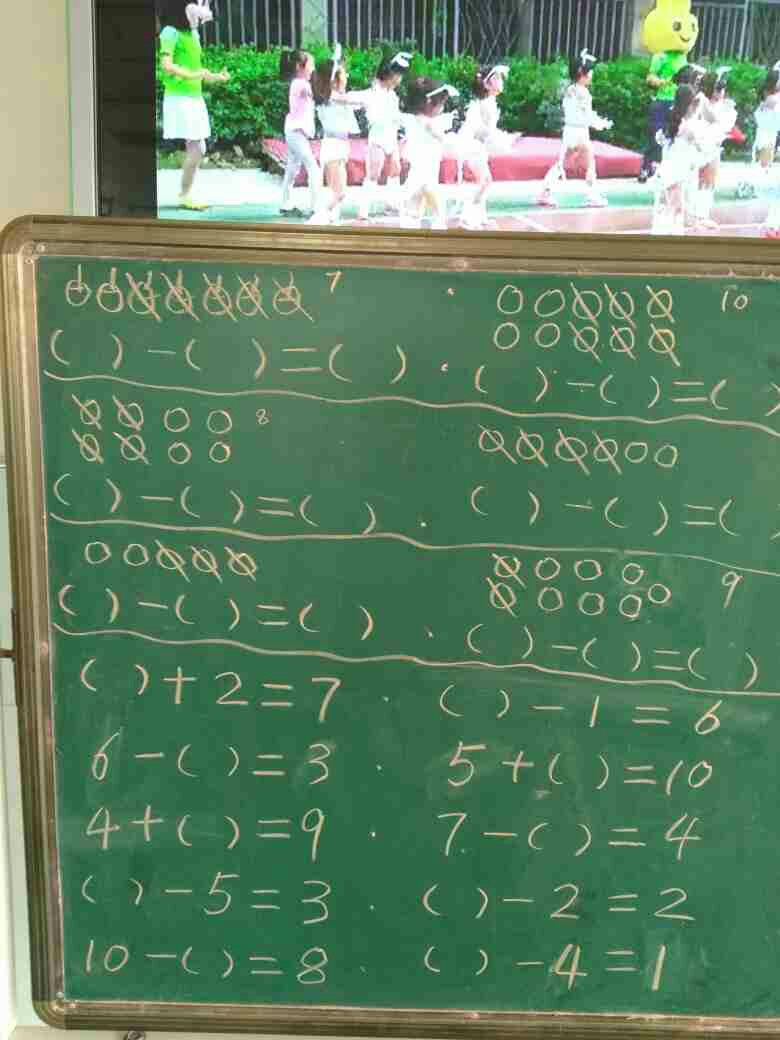 7
10
( ) - ( ) = ( ) .
( ) - ( ) = ( )
8
( ) - ( ) = ( ) .
( ) - ( ) = (
9
( ) - ( ) = ( ) .
( ) - ( ) = ( )
( ) + 2 = 7 .
( ) - 1 = 6
6 - ( ) = 3 .
5 + ( ) = 10
4 + ( ) = 9 .
7 - ( ) = 4
( ) - 5 = 3 .
( ) - 2 = 2
10 - ( ) = 8 .
( ) - 4 = 1